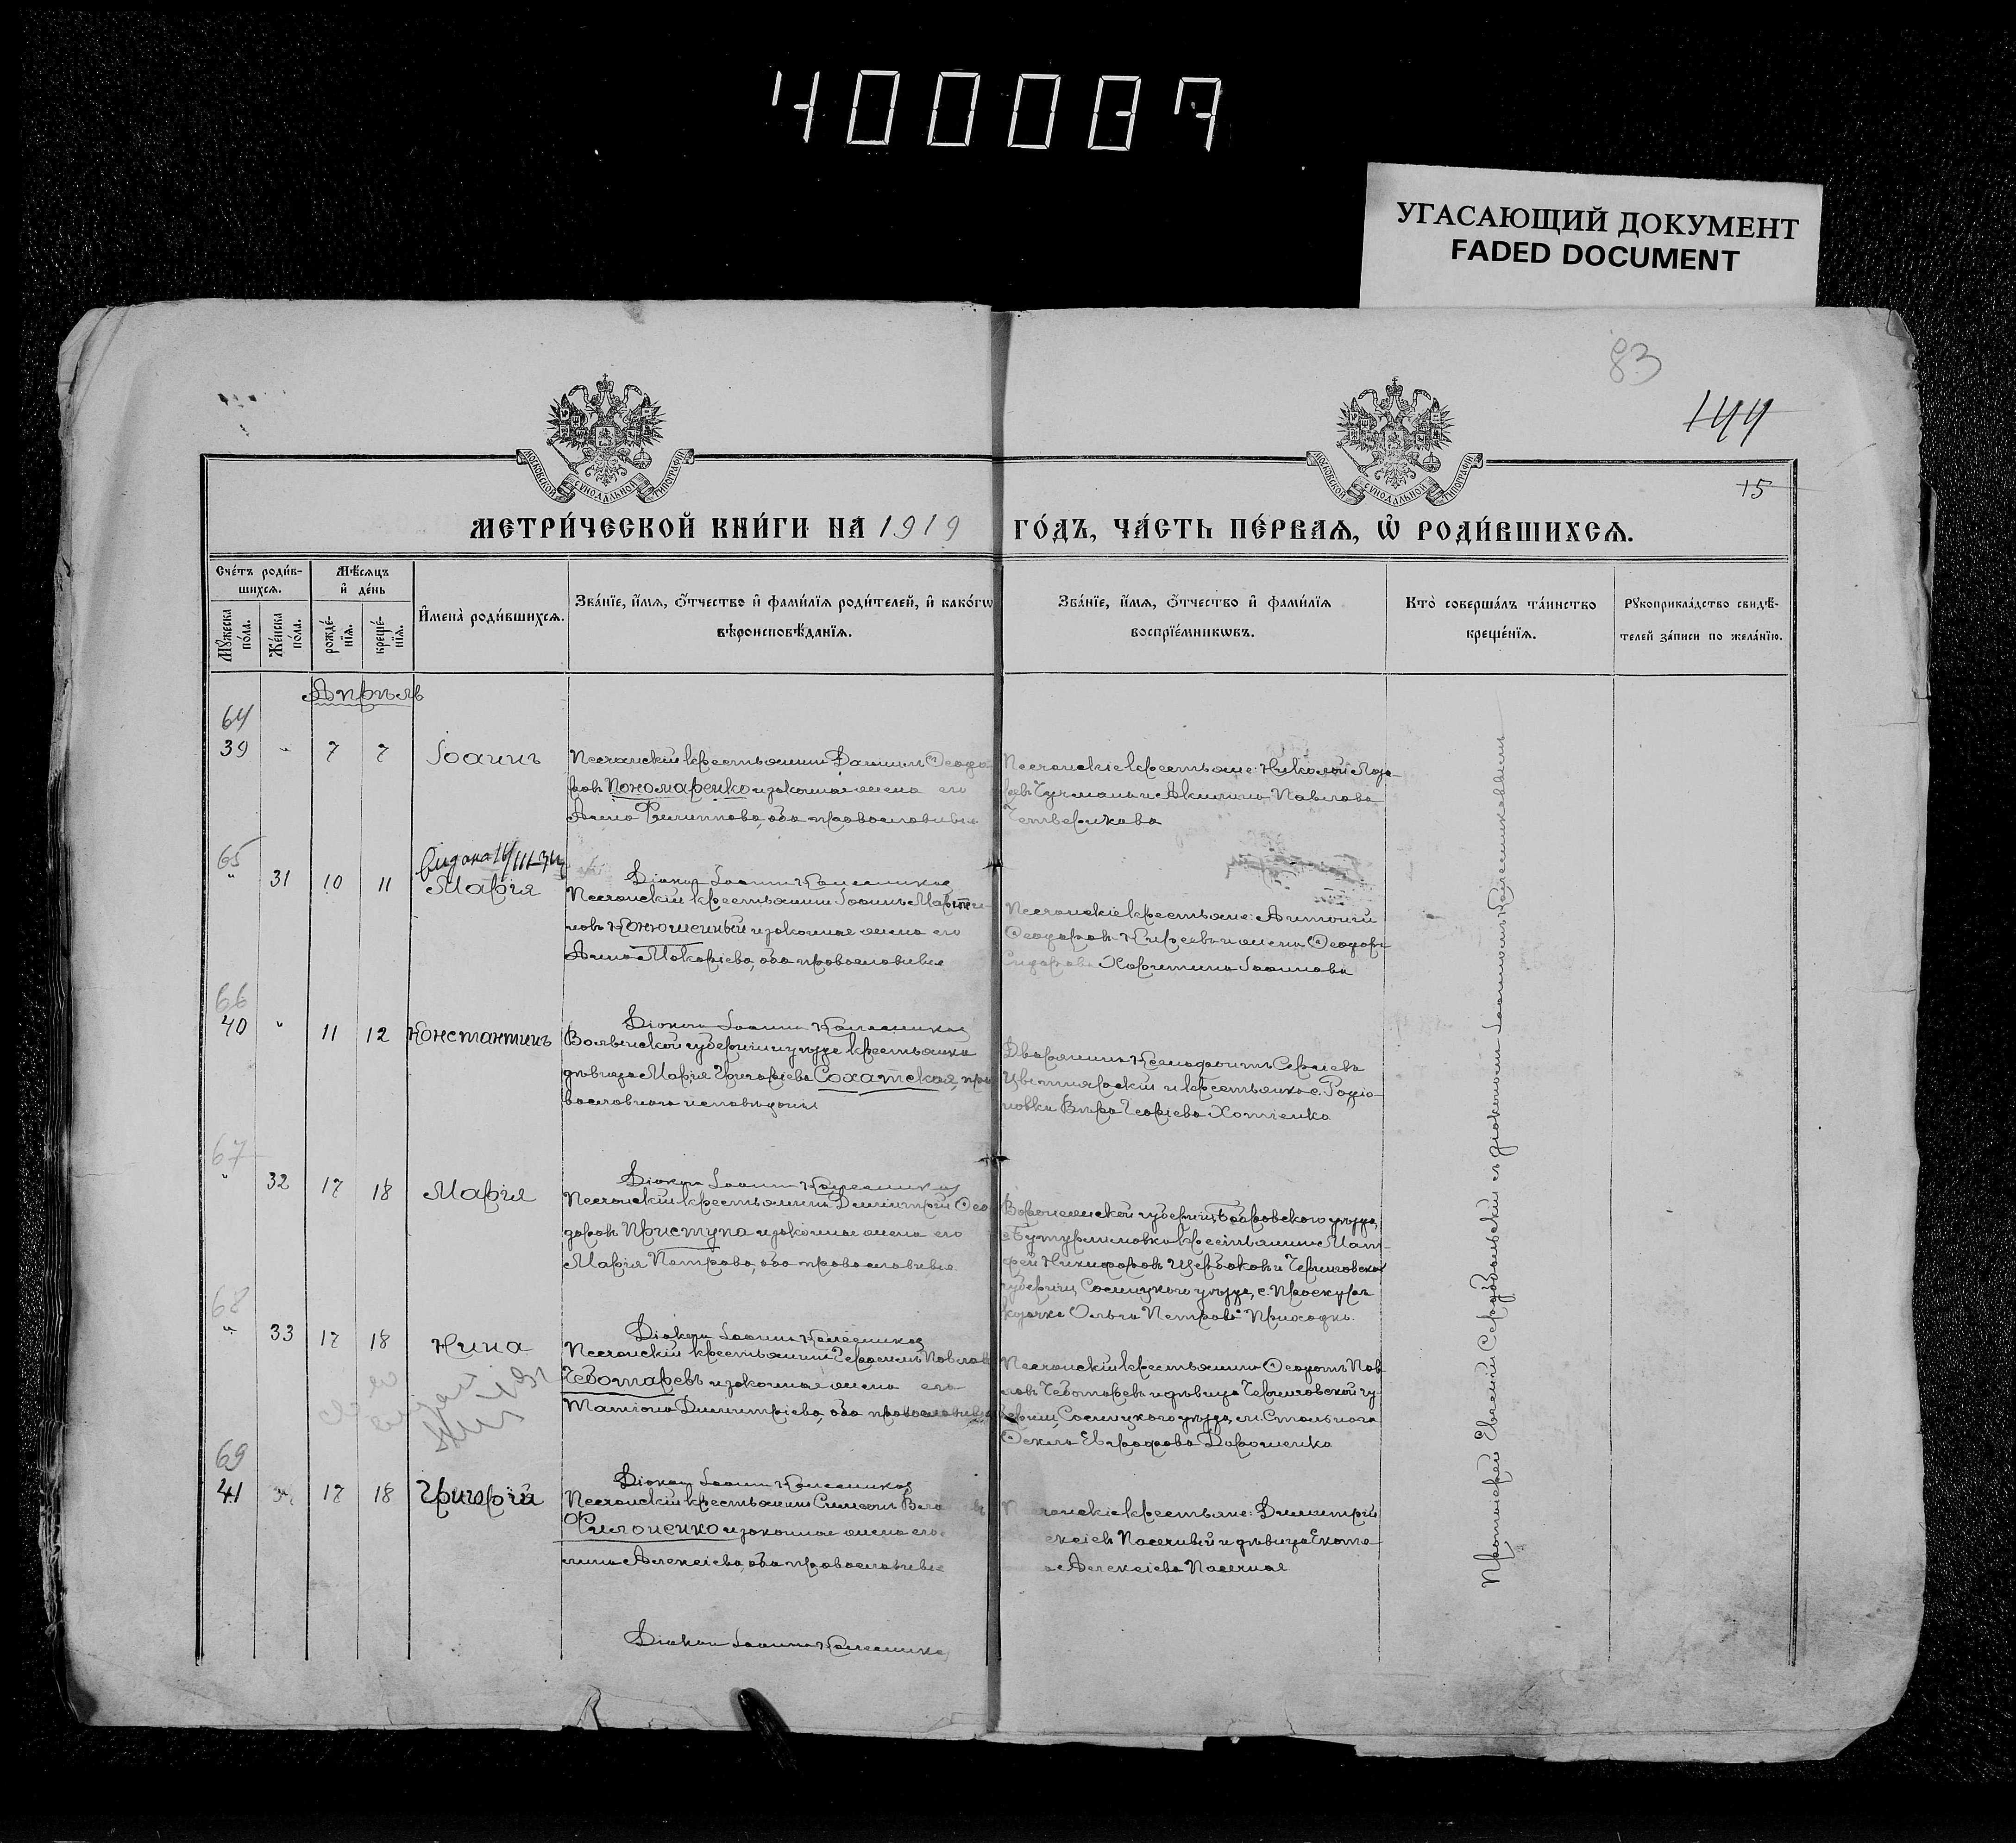 400087
УГАСАЮЩИЙ ДОКУМЕНТ
FADED DOCUMENT
83
144
15
МОСКОВСКОЙ СУНОДАЛЬНОЙ ТИПОГРАФІИ
МОСКОВСКОЙ СУНОДАЛЬНОЙ ТИПОГРАФІИ
МЕТРИ́ЧЕСКОЙ КНИ́ГИ НА 1919 ГО́ДЪ, ЧА́СТЬ ПЕ́РВАѦ, Ѡ҆ РОДИ́ВШИХСѦ.
Сче́тъ роди́в-
шихсѧ.
Мꙋ́жеска по́ла.
Же́нска по́ла.
Мѣ́сѧцъ
и҆ де́нь
рожде́-
нїѧ.
креще́-
нїѧ.
И҆мена̀ роди́вшихсѧ.
Зва́нїе, и҆́мѧ, ѻ҆́тчество и҆ фами́лїѧ роди́телей, и҆ како́гѡ
вѣроисповѣ́данїѧ.
Зва́нїе, и҆́мѧ, ѻ҆́тчество и҆ фами́лїѧ
воспрїе́мникѡвъ.
Кто̀ соверша́лъ та́инство
креще́нїѧ.
Рꙋкоприкла́дство свидѣ́-
телей за́писи по жела́нїю.
Апрѣль
64
39 " 7 7 Іоаннъ
Песчанскій крестьянинъ Даніилъ Ѳеодо-
ровъ Пономаренко и законная жена его
Анна Филиппова, оба православные
Песчанскіе крестьяне: Николай
и Акилина Павлова
Четверикова
65
" 31 10 11 Марія
Видана 14/III
Діаконъ Іоаннъ Колесниковъ
Песчанскій крестьянинъ Іоаннъ Марти-
новъ Конюшенный и законная жена его
Анна Макаріева, оба православные
Песчанскіе крестьяне: Антоній
Ѳеодоровъ и жена Ѳеодора
Сидорова Харитина Іоаннова
66
40 " 11 12 Константинъ
Діаконъ Іоаннъ Колесниковъ
Волынской губерніи и уѣзда крестьянка
дѣвица Марія Григоріева Сохатская, пра
вославного исповѣданія
Дворянинъ Ксенофонтъ Сергіевъ
и крестьянка с. Родіо-
новки Вѣра Георгіева Хотіенко
67
" 32 17 18 Марія
Діаконъ Іоаннъ Колесниковъ
Песчанскій крестьянинъ Димитрій Ѳео
доровъ Приступа и законная жена его
Марія Петрова, оба православные
Воронежской губерніи, Бобровского уѣзда,
с. Бутурлиновки крестьянинъ Мат-
фей Никифоровъ Щербаковъ и Черниговской
губерніи, Сосницкого уѣзда, с.
козачка Ольга Петрова Приходько
68
" 33 17 18 Нина
Діаконъ Іоаннъ Колесниковъ
Песчанскій крестьянинъ Герасимъ Павловъ
Чеботаревъ и законная жена его
Татіана Димитріева, оба православные
Песчанскій крестьянинъ Ѳеодотъ Пав
ловъ Чеботаревъ и дѣвица Черниговской гу
берніи, Сосницкого уѣзда, м. Стольного
Ѳекла Евграфова Дорошенко
69
41 " 17 18 Григорій
Діаконъ Іоаннъ Колесниковъ
Песчанскій крестьянинъ Симеонъ
Филоненко и законная жена его
Алексіева, оба православные
Песчанскіе крестьяне: Димитрій
Алексіевъ Пасечный и дѣвица Екате
Алексіева Пасечная
Діаконъ Іоаннъ Колесниковъ
Протоіерей Евгеній съ діакономъ Іоанномъ Колесниковымъ